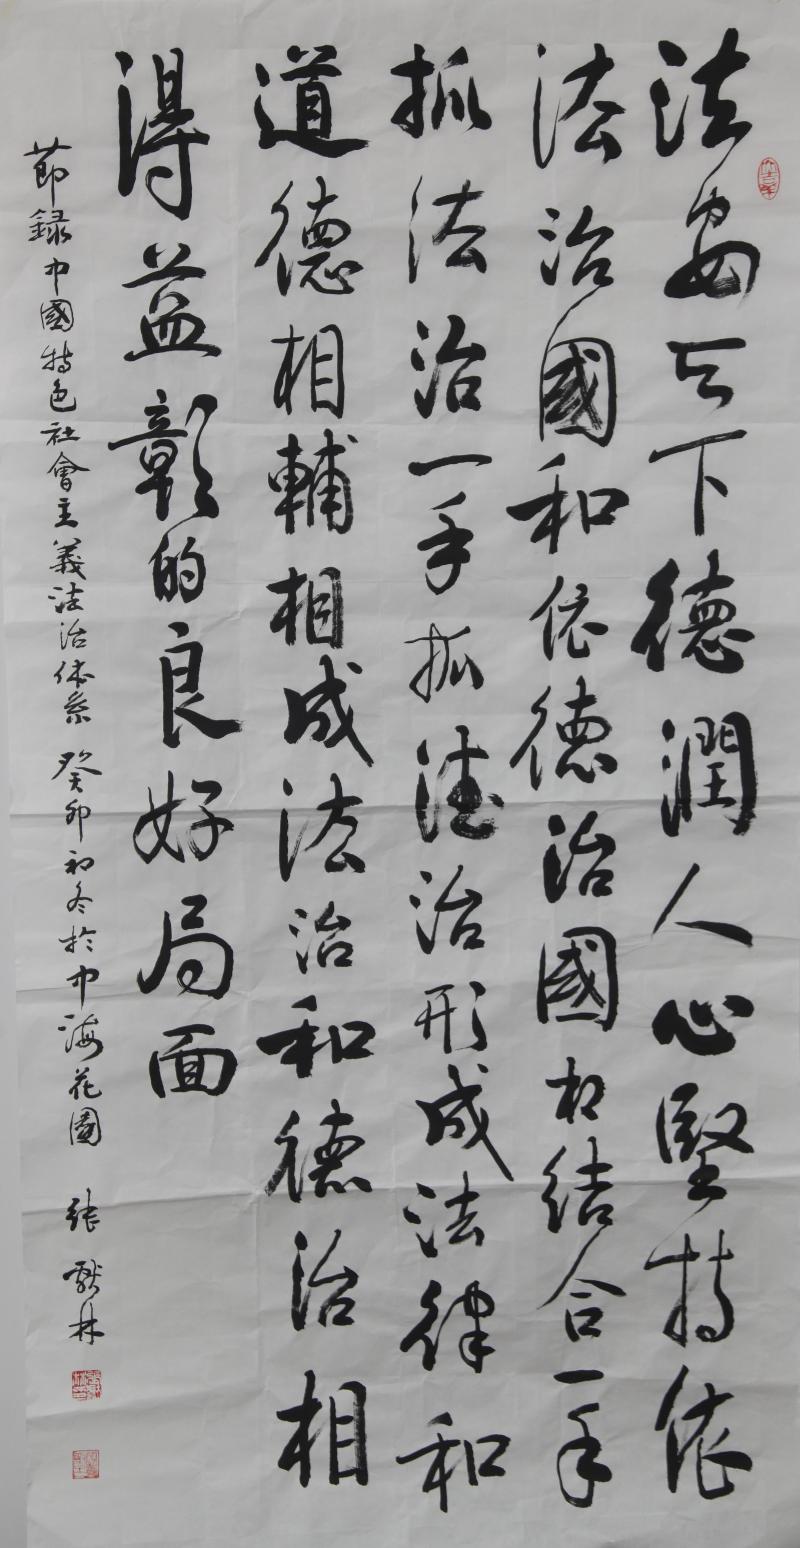 法安天下德潤人心堅持依
法治國和依德治國相結合一手
抓法治一手抓德治形成法律和
道德相輔相成法治和德治相
得益彰的良好局面
節録中國特色社會主義法治体系 癸卯初冬於中海花園 張獻林